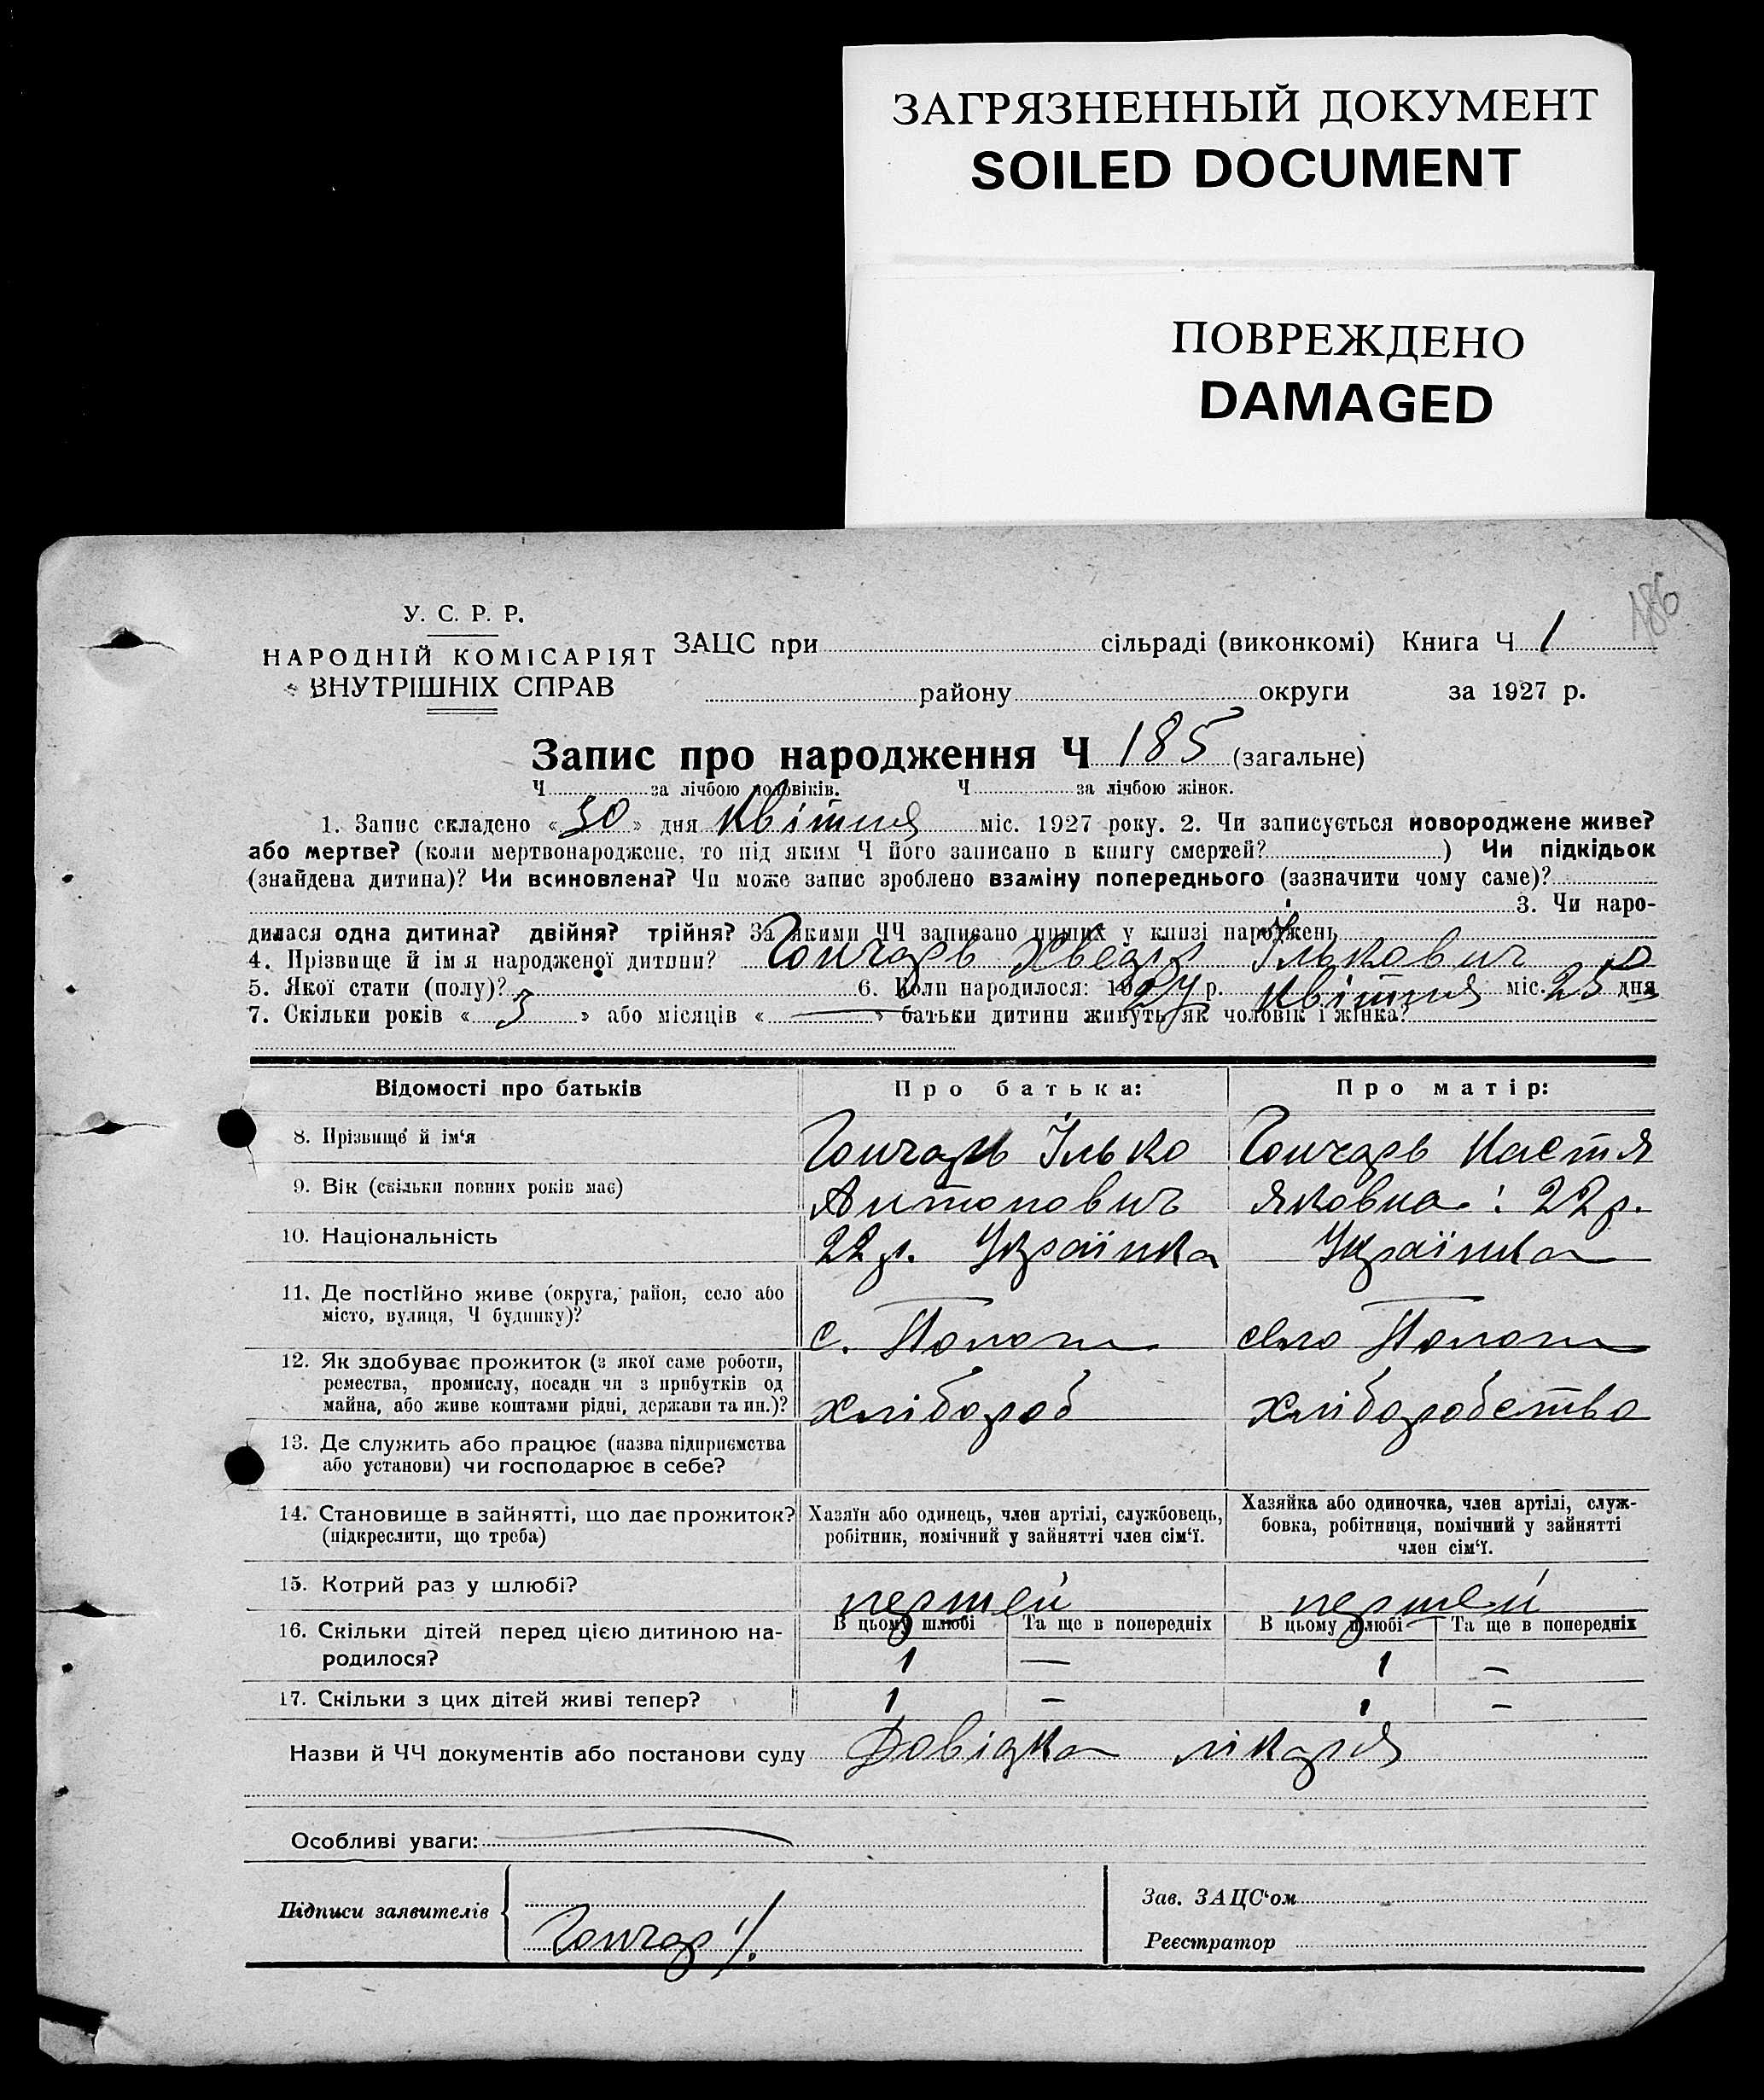 ЗАГРЯЗНЕННЫЙ ДОКУМЕНТ
SOILED DOCUMENT
ПОВРЕЖДЕНО
DAMAGED
186
У. С. Р. Р.
НАРОДНІЙ КОМІСАРІЯТ
ВНУТРІШНІХ СПРАВ
ЗАЦС при сільраді (виконкомі) Книга Ч 1
району округи за 1927 р.
Запис про народження Ч 185 (загальне)
Ч за лічбою чоловіків. Ч за лічбою жінок.
1. Запис складено « 30 » дня Квітня міс. 1927 року. 2. Чи записується новороджене живе?
або мертве? (коли мертвонароджене, то під яким Ч його записано в книгу смертей? ) Чи підкідьок
(знайдена дитина)? Чи всиновлена? Чи може запис зроблено взаміну попереднього (зазначити чому саме)?
3. Чи наро-
дилася одна дитина? двійня? трійня? За якими ЧЧ записано инших у книзі народжень
4. Прізвище й ім я народженої дитини? Гончарь Хведір Ількович
5. Якої стати (полу)? 6. Коли народилося: 1927 р. Квітня міс. 25 дня
7. Скільки років « 3 » або місяців « — » батьки дитини живуть як чоловік і жінка?
Відомості про батьків Про батька: Про матір:
8. Прізвище й ім‘я Гончарь Ілько Гончарь Настя
9. Вік (скільки повних років має) Антонович Яковна : 22 р.
10. Національність 22 р. Українка Українка
11. Де постійно живе (округа, район, село або
місто, вулиця, Ч будинку)? с. Пологи село Пологи
12. Як здобуває прожиток (з якої саме роботи,
ремества, промислу, посади чи з прибутків од
майна, або живе коштами рідні, держави та ин.)? хлібороб хліборобство
13. Де служить або працює (назва підприємства
або установи) чи господарює в себе?
14. Становище в зайнятті, що дає прожиток?
(підкреслити, що треба)
Хазяїн або одинець, член артілі, службовець,
робітник, помічний у зайнятті член сім‘ї.
Хазяйка або одиночка, член артілі, служ-
бовка, робітниця, помічний у зайнятті
член сім‘ї.
15. Котрий раз у шлюбі? першей першей
В цьому шлюбі Та ще в попередніх В цьому шлюбі Та ще в попередніх
16. Скільки дітей перед цією дитиною на-
родилося? 1 — 1 —
17. Скільки з цих дітей живі тепер? 1 — 1 —
Назви й ЧЧ документів або постанови суду Довідка лікаря
Особливі уваги:
Підписи заявителів Гончар І.
Зав. ЗАЦС‘ом
Реєстратор